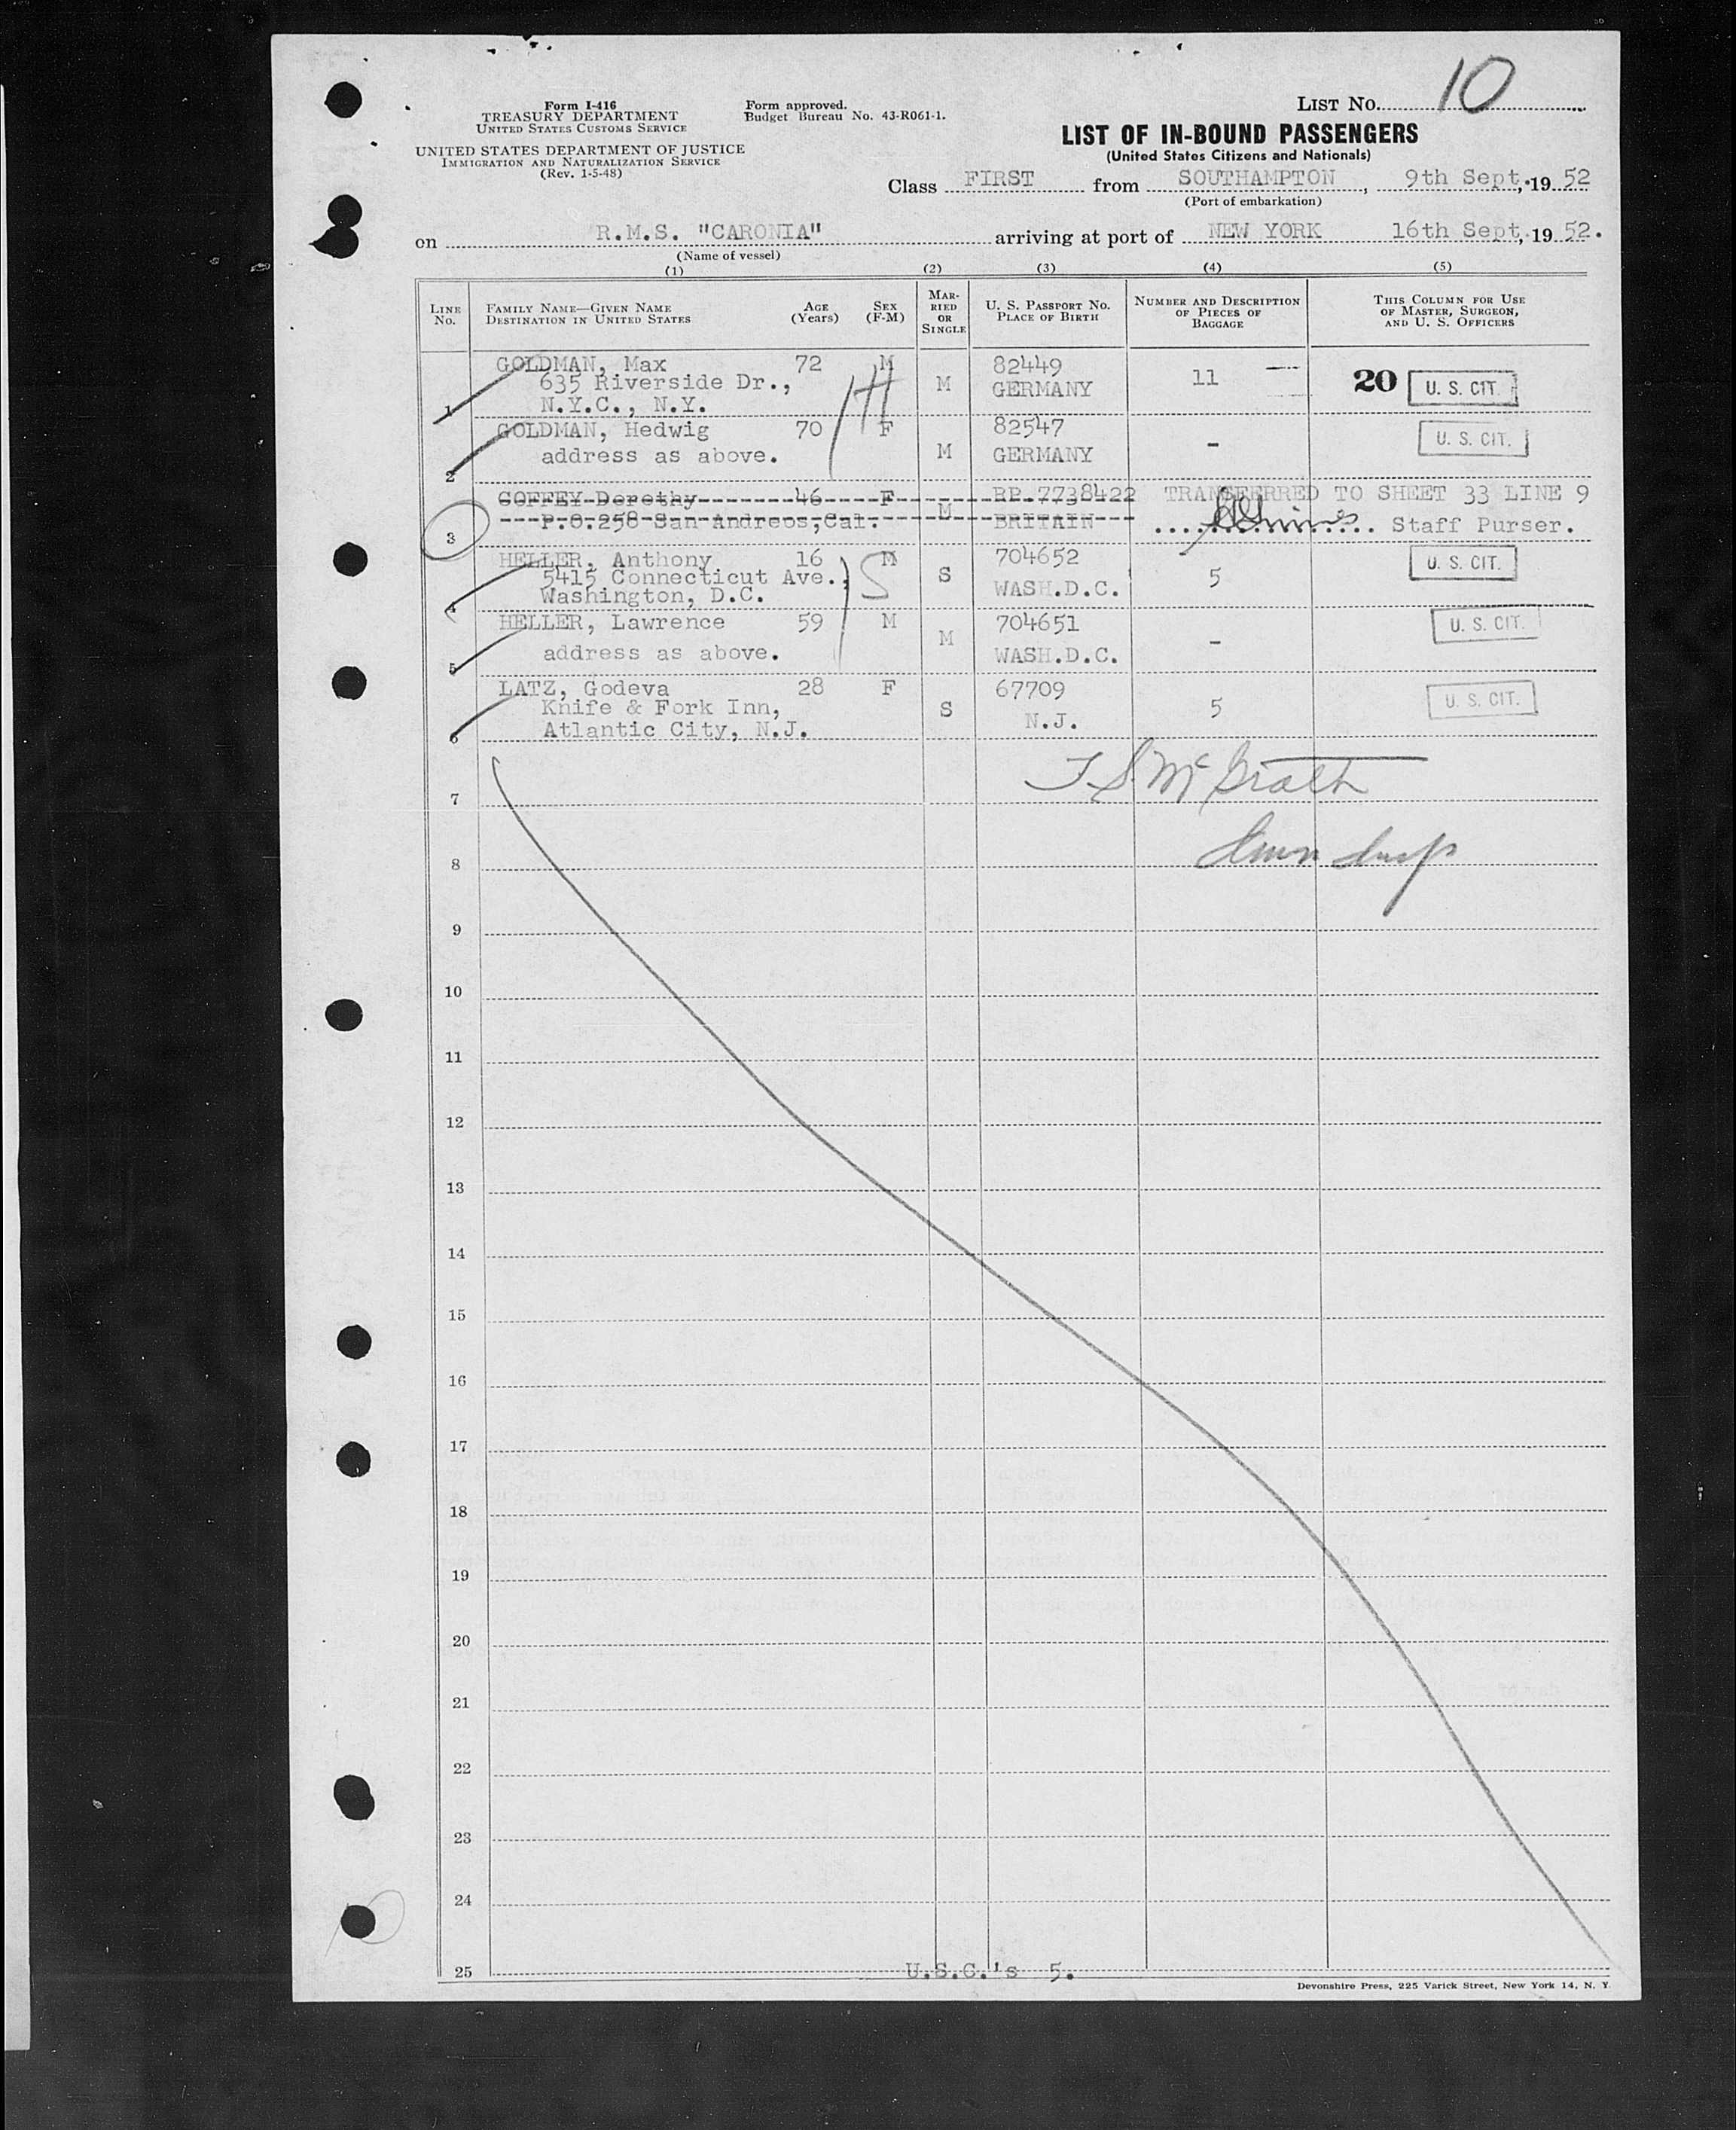 LIST No. 10
Form I-416
TREASURY DEPARTMENT
UNITED STATES CUSTOMS SERVICE
UNITED STATES DEPARTMENT OF JUSTICE
IMMIGRATION AND NATURALIZATION SERVICE
(Rev. 1-5-48)
Form approved.
Budget Bureau No. 43-R061-1.
LIST OF IN-BOUND PASSENGERS
(United States Citizens and Nationals)
Class FIRST from SOUTHAMPTON, 9th Sept., 19 52
(Port of embarkation)
on R.M.S. "CARONIA" arriving at port of NEW YORK 16th Sept., 19 52.
(Name of vessel)
(1) (2) (3) (4) (5)
LINE No. FAMILY NAME—GIVEN NAME DESTINATION IN UNITED STATES AGE (Years) SEX (F-M) MARRIED OR SINGLE U. S. PASSPORT No. PLACE OF BIRTH NUMBER AND DESCRIPTION OF PIECES OF BAGGAGE THIS COLUMN FOR USE OF MASTER, SURGEON, AND U. S. OFFICERS
GOLDMAN, Max 72 M 82449
635 Riverside Dr., M GERMANY 11 — 20 U. S. CIT.
1 N.Y.C., N.Y.
H
GOLDMAN, Hedwig 70 F 82547 U. S. CIT.
address as above. M GERMANY -
2
COFFEY Dorothy 46 F BP.7738422 TRANSFERRED TO SHEET 33 LINE 9
P.O.258 San Andreos,Cal. M BRITAIN Staff Purser.
3
HELLER, Anthony 16 M 704652 U. S. CIT.
5415 Connecticut Ave., S S WASH.D.C. 5
4 Washington, D.C.
HELLER, Lawrence 59 M 704651 U. S. CIT.
address as above. M WASH.D.C. -
5
LATZ, Godeva 28 F 67709 U. S. CIT.
Knife & Fork Inn, S N.J. 5
6 Atlantic City, N.J.
T. S. McGrath
7
Immn Insp
8
9
10
11
12
13
14
15
16
17
18
19
20
21
22
23
24
25 U.S.C.'s 5.
Devonshire Press, 225 Varick Street, New York 14, N. Y.